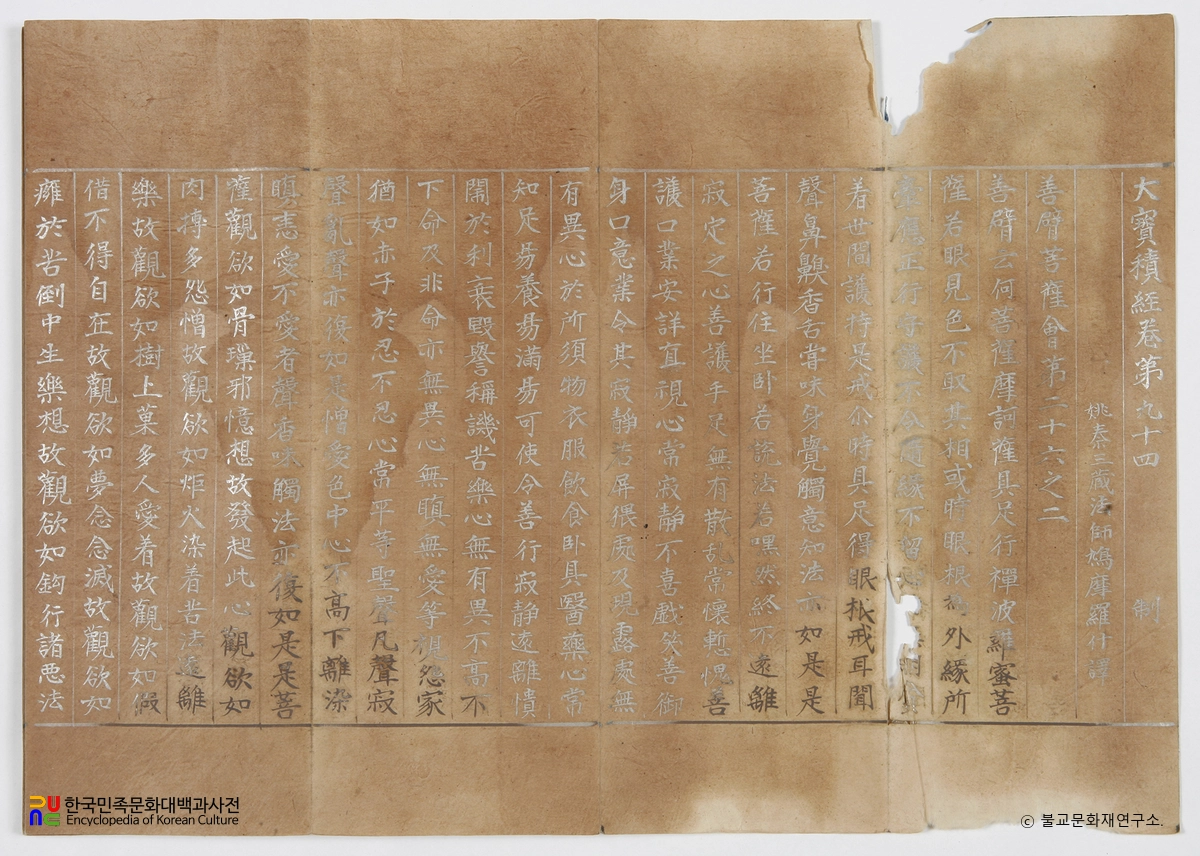 大寶積經卷第九十四 制
姚秦三藏法師鳩摩羅什譯
善臂菩薩會第二十六之二
善臂云何菩薩摩訶薩具足行禪波羅蜜菩
薩若眼見色不取其相或時眼根為外緣所
應正行守護不令隨緣不留
着世間護持是戒尒時具足得眼根戒耳聞
聲鼻齅香舌甞味身覺觸意知法亦如是是
菩薩若行住坐卧若說法若嘿然終不遠離
寂定之心善護手足無有散乱常懷慙愧善
護口業安詳直視心常寂静不喜戲笑善御
身口意業令其寂静若屏猥處及現露處無
有異心於所須物衣服飲食卧具醫藥心常
知足易養易滿易可使令善行寂静遠離憒
閙於利衰毀譽稱譏苦樂心無有異不高不
下命及非命亦無異心無瞋無愛等視怨家
猶如赤子於忍不忍心常平等聖聲凡聲寂
聲亂聲亦復如是憎愛色中心不高下離染
瞋恚愛不愛者聲香味觸法亦復如是是菩
薩觀欲如骨璅邪憶想故發起此心觀欲如
肉摶多怨憎故觀欲如炬火染着苦法遠離
樂故觀欲如樹上菓多人愛着故觀欲如假
借不得自在故觀欲如夢念念滅故觀欲如
癰於苦倒中生樂想故觀欲如鈎行諸惡法
한국민족문화대백과사전
Encyclopedia of Korean Culture
ⓒ 불교문화재연구소.